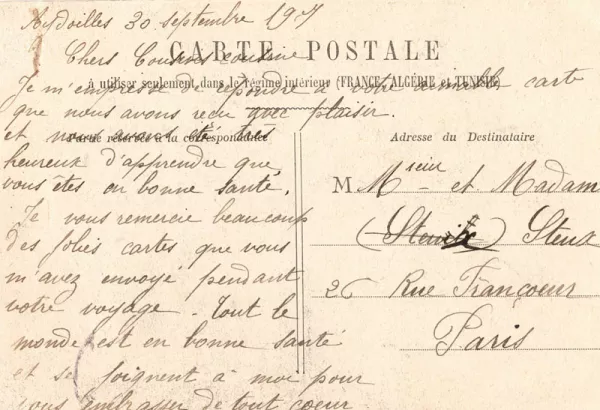 Aydoilles 30 septembre 197
Chers Cousins cousine
CARTE POSTALE
Je m'empresse de répondre à votre aimable carte
à utiliser seulement dans le régime intérieur (FRANCE, ALGÉRIE et TUNISIE)
que nous avons reçu avec plaisir.
et nous avons été très
Partie réservée à la correspondance
heureux d'apprendre que
vous êtes en bonne santé.
Je vous remercie beaucoup
des jolies cartes que vous
m'avez envoyé pendant
votre voyage - tout le
monde est en bonne santé
et se joignent à moi pour
vous embrasser de tout coeur
Adresse du Destinataire
M. Msieur et Madam
Steux
26 Rue Francoeur
Paris